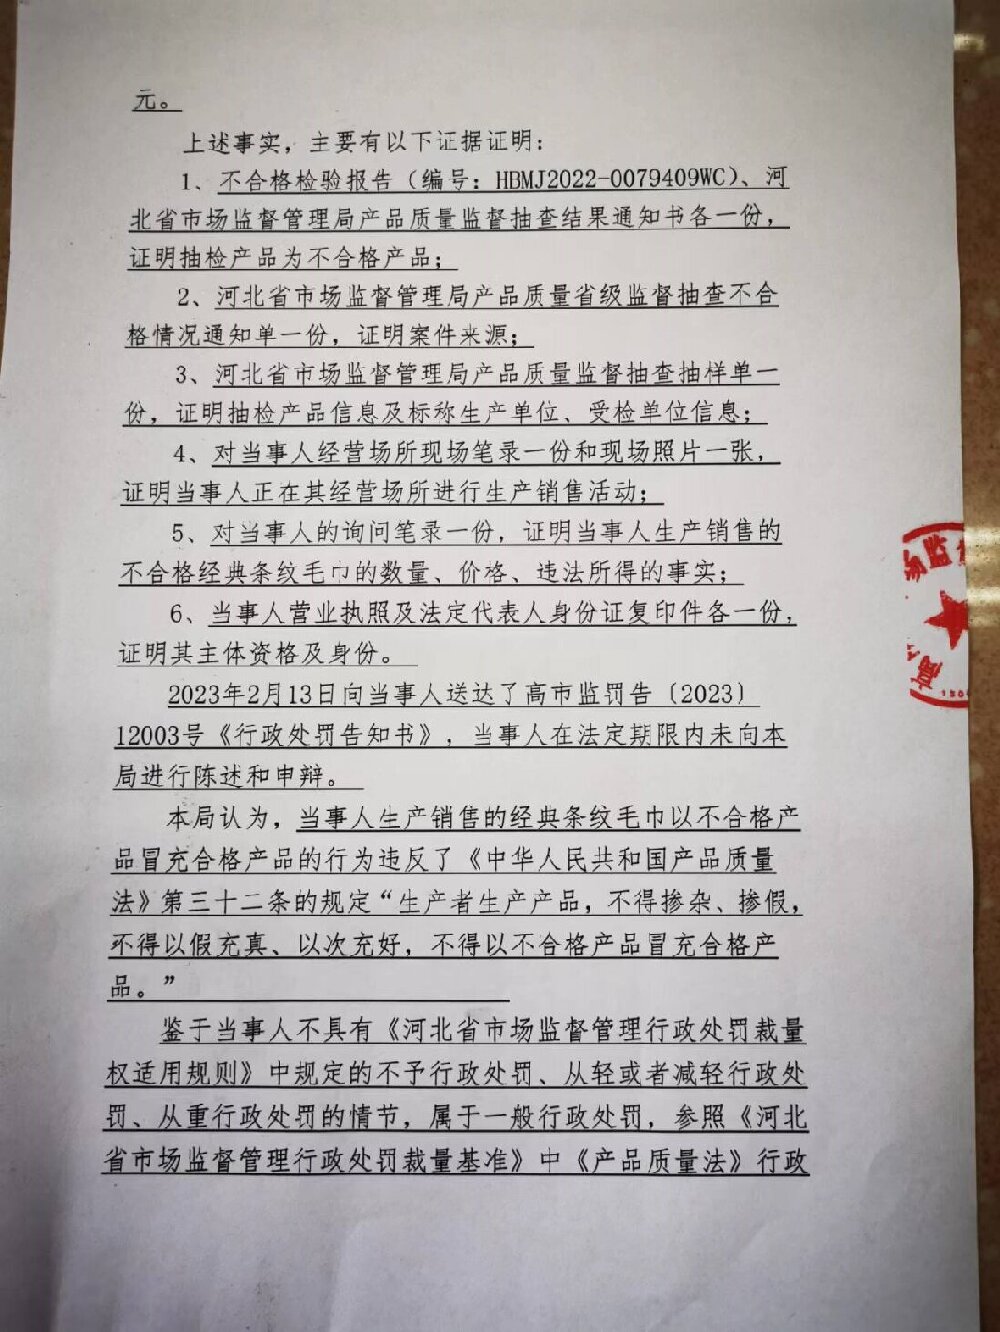 元。
上述事实，主要有以下证据证明：
1、不合格检验报告（编号：HBMJ2022-0079409WC）、河
北省市场监督管理局产品质量监督抽查结果通知书各一份，
证明抽检产品为不合格产品；
2、河北省市场监督管理局产品质量省级监督抽查不合
格情况通知单一份，证明案件来源；
3、河北省市场监督管理局产品质量监督抽查抽样单一
份，证明抽检产品信息及标称生产单位、受检单位信息；
4、对当事人经营场所现场笔录一份和现场照片一张，
证明当事人正在其经营场所进行生产销售活动；
5、对当事人的询问笔录一份，证明当事人生产销售的
不合格经典条纹毛巾的数量、价格、违法所得的事实；
6、当事人营业执照及法定代表人身份证复印件各一份，
证明其主体资格及身份。
2023年2月13日向当事人送达了高市监罚告〔2023〕
12003号《行政处罚告知书》，当事人在法定期限内未向本
局进行陈述和申辩。
本局认为，当事人生产销售的经典条纹毛巾以不合格产
品冒充合格产品的行为违反了《中华人民共和国产品质量
法》第三十二条的规定“生产者生产产品，不得掺杂、掺假，
不得以假充真、以次充好，不得以不合格产品冒充合格产
品。”
鉴于当事人不具有《河北省市场监督管理行政处罚裁量
权适用规则》中规定的不予行政处罚、从轻或者减轻行政处
罚、从重行政处罚的情节，属于一般行政处罚，参照《河北
省市场监督管理行政处罚裁量基准》中《产品质量法》行政
场监
高